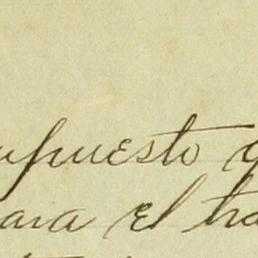 upuesto
ara el tra